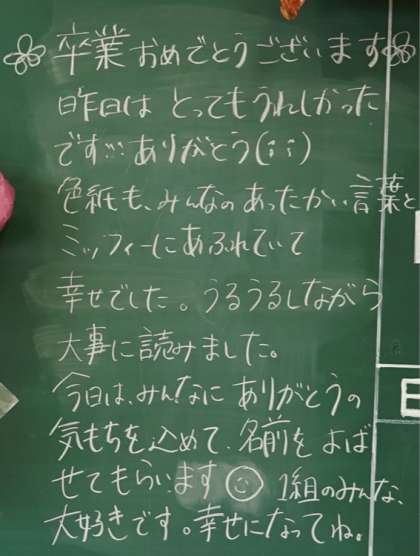 卒業おめでとうございます
昨日は とってもうれしかった
です… ありがとう(；；)
色紙も、みんなのあったかい言葉と
ミッフィーにあふれていて
幸せでした。うるうるしながら
大事に読みました。
今日は、みんなに ありがとうの
気もちを込めて、名前をよば
せてもらいます ☺ 1組のみんな、
大好きです。幸せになってね。